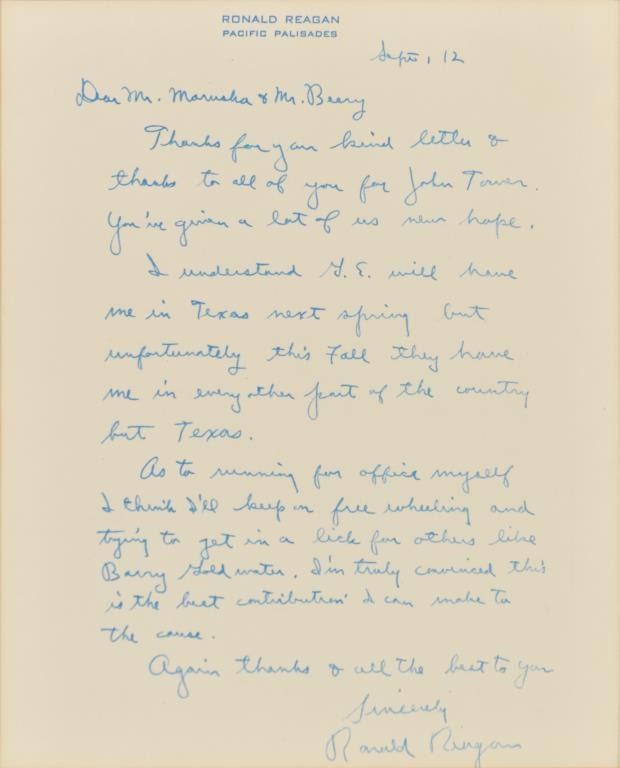 RONALD REAGAN
PACIFIC PALISADES
Sept. 12
Dear Mr. Maruska & Mr. Beery
Thanks for your kind letter &
thanks to all of you for John Tower.
You've given a lot of us new hope.
I understand G.E. will have
me in Texas next spring but
unfortunately this Fall they have
me in every other part of the country
but Texas.
As to running for office myself
I think I'll keep on free wheeling and
trying to get in a lick for others like
Barry Goldwater. I'm truly convinced this
is the best contribution I can make to
the cause.
Again thanks & all the best to you
Sincerely
Ronald Reagan